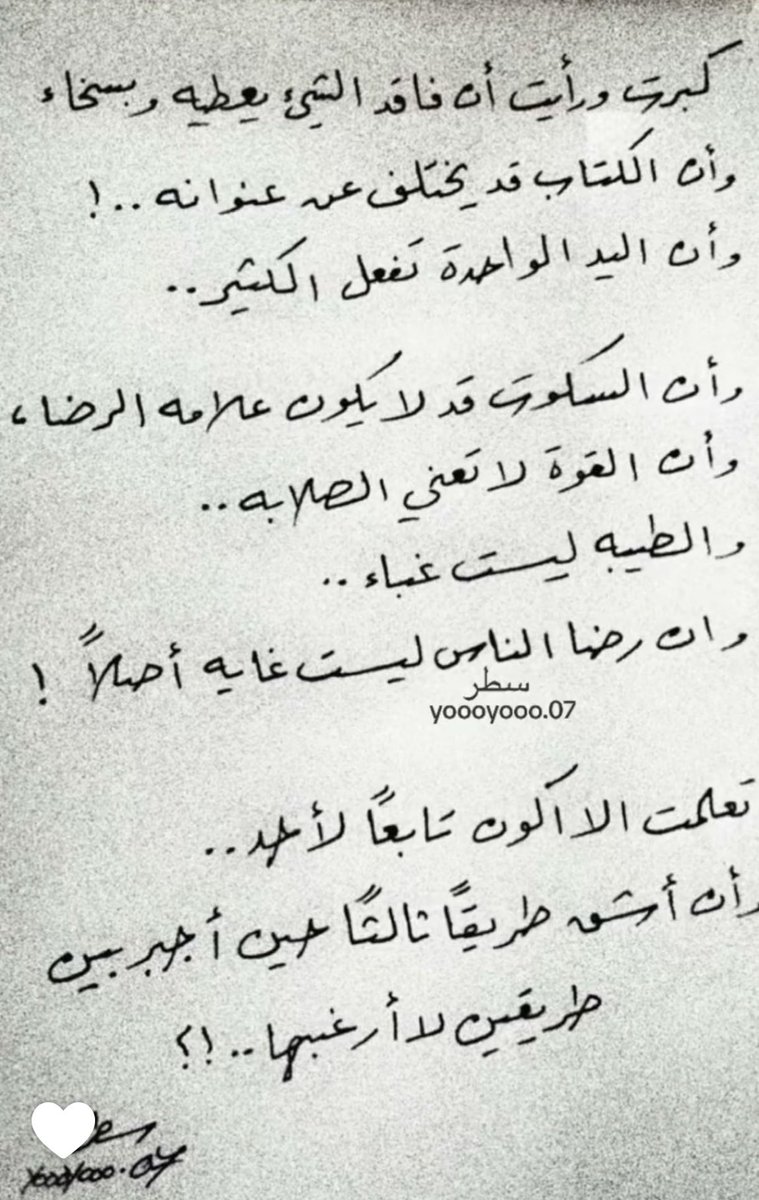 كبرت ورأيت أن فاقد الشيئ يعطيه وبسخاء
وأن الكتاب قد يختلف عن عنوانه ..!
وأن اليد الواحدة تفعل الكثير..
وأن السكوت قد لا يكون علامه الرضا ،
وأن القوة لا تعني الصلابه ..
والطيبه ليست غباء ..
وان رضا الناس ليست غايه أصلاً !
سطر
yoooyooo.07
تعلمت الا اكون تابعاً لأحد ..
وأن أشق طريقاً ثالثاً حين أجبر بين
طريقين لا أرغبها ..!؟
yoooyooo.07